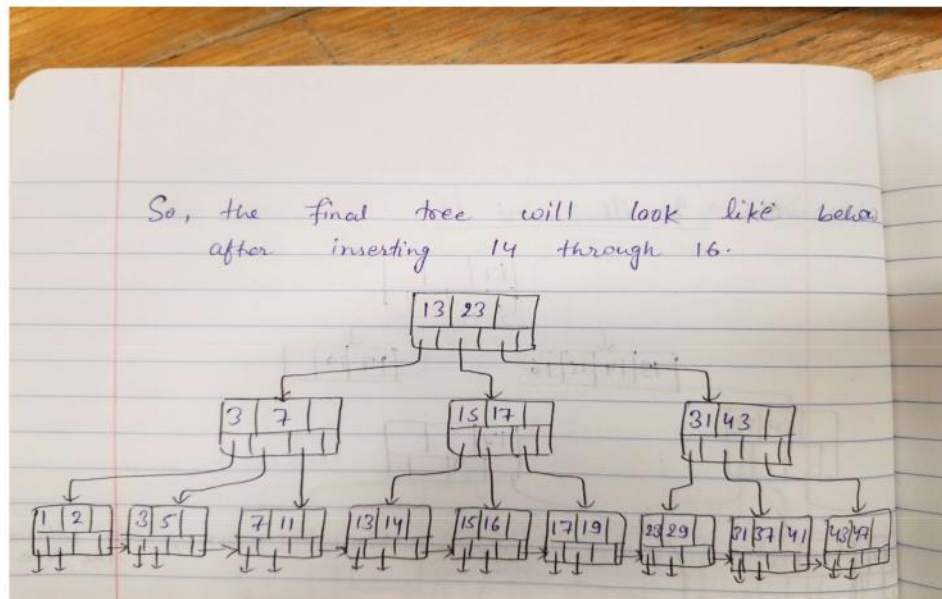 So, the final tree will look like below
after inserting 14 through 16.
13 23
3 7
15 17
31 43
1 2
3 5
7 11
13 14
15 16
17 19
23 29
31 37 41
43 47